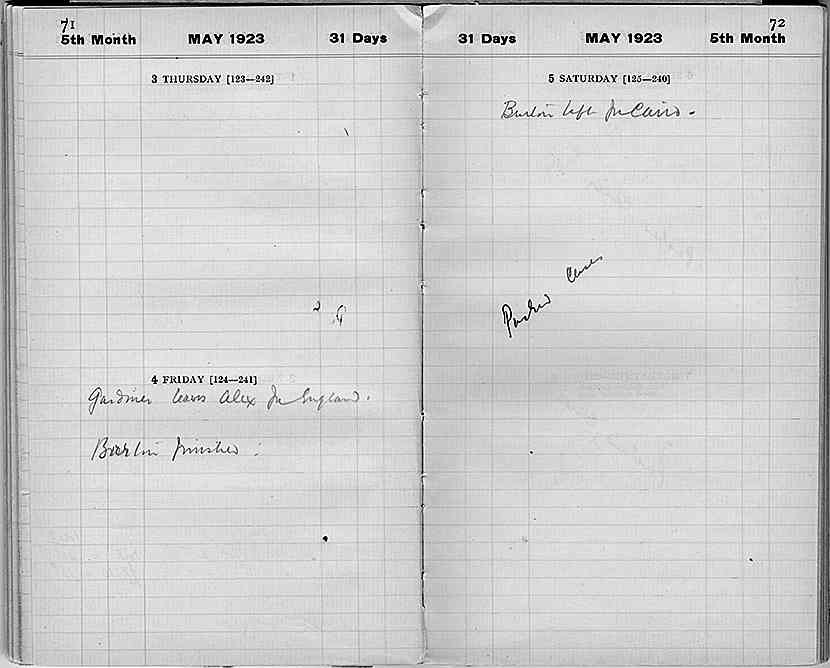 71
5th Month MAY 1923 31 Days
3 THURSDAY [123—242]
4 FRIDAY [124—241]
Gardiner leaves Alex for England.
Burton finished.
72
31 Days MAY 1923 5th Month
5 SATURDAY [125—240]
Burton left for Cairo.
Packed Cases